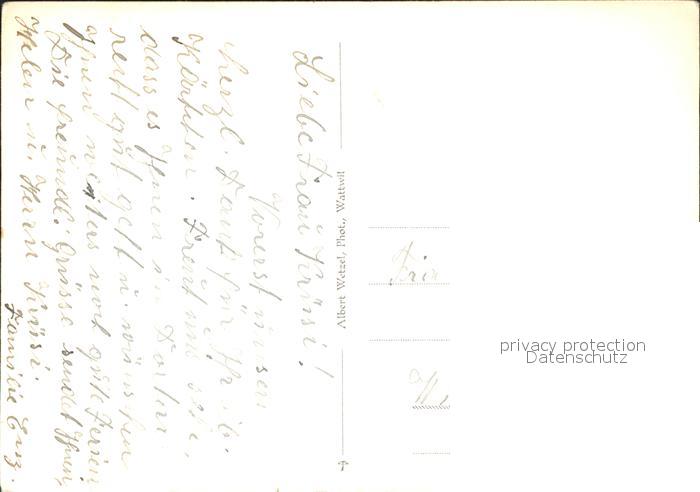 Liebe Frau Krüsi!
Vorerst unsern
herzl. Dank für Ihr lb.
Kärtchen. Freut uns sehr,
dass es Ihnen in
recht gut geht u. wünschen
Ihnen weiters noch gute Ferien
Die freundl. Grüsse sendet Ihnen,
Helen u. Herrn Krüsi.
Familie Enz.
Albert Wetzel, Phot., Wattwil
privacy protection
Datenschutz